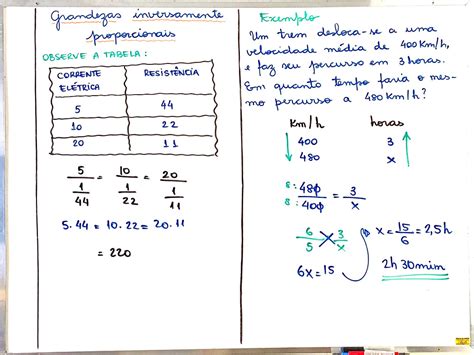 Grandezas inversamente
proporcionais
OBSERVE A TABELA:
CORRENTE ELÉTRICA | RESISTÊNCIA
5 | 44
10 | 22
20 | 11
5/(1/44) = 10/(1/22) = 20/(1/11)
5.44 = 10.22 = 20.11
= 220
Exemplo
Um trem desloca-se a uma
velocidade média de 400 km/h,
e faz seu percurso em 3 horas.
Em quanto tempo faria o mes-
mo percurso a 480 km/h?
km/h horas
↓ 400 3 ↑
480 x
8: 480/8: 400 = 3/x
6/5 = 3/x
6x = 15
x = 15/6 = 2,5h
2h 30min